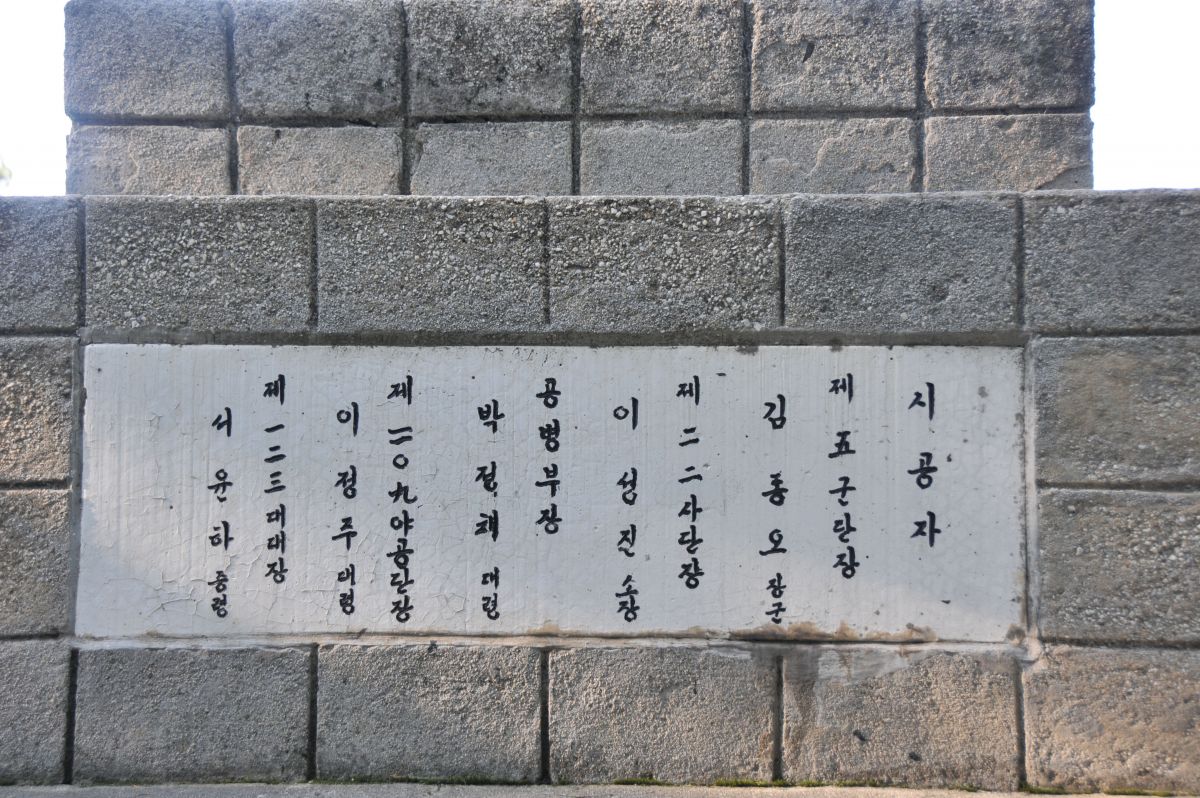 시공자
제五군단장
김통오 장군
제二二사단장
이성진 소장
공병부장
박정채 대령
제一一〇九야공단장
이정주 대령
제一二三대대장
서윤하 중령